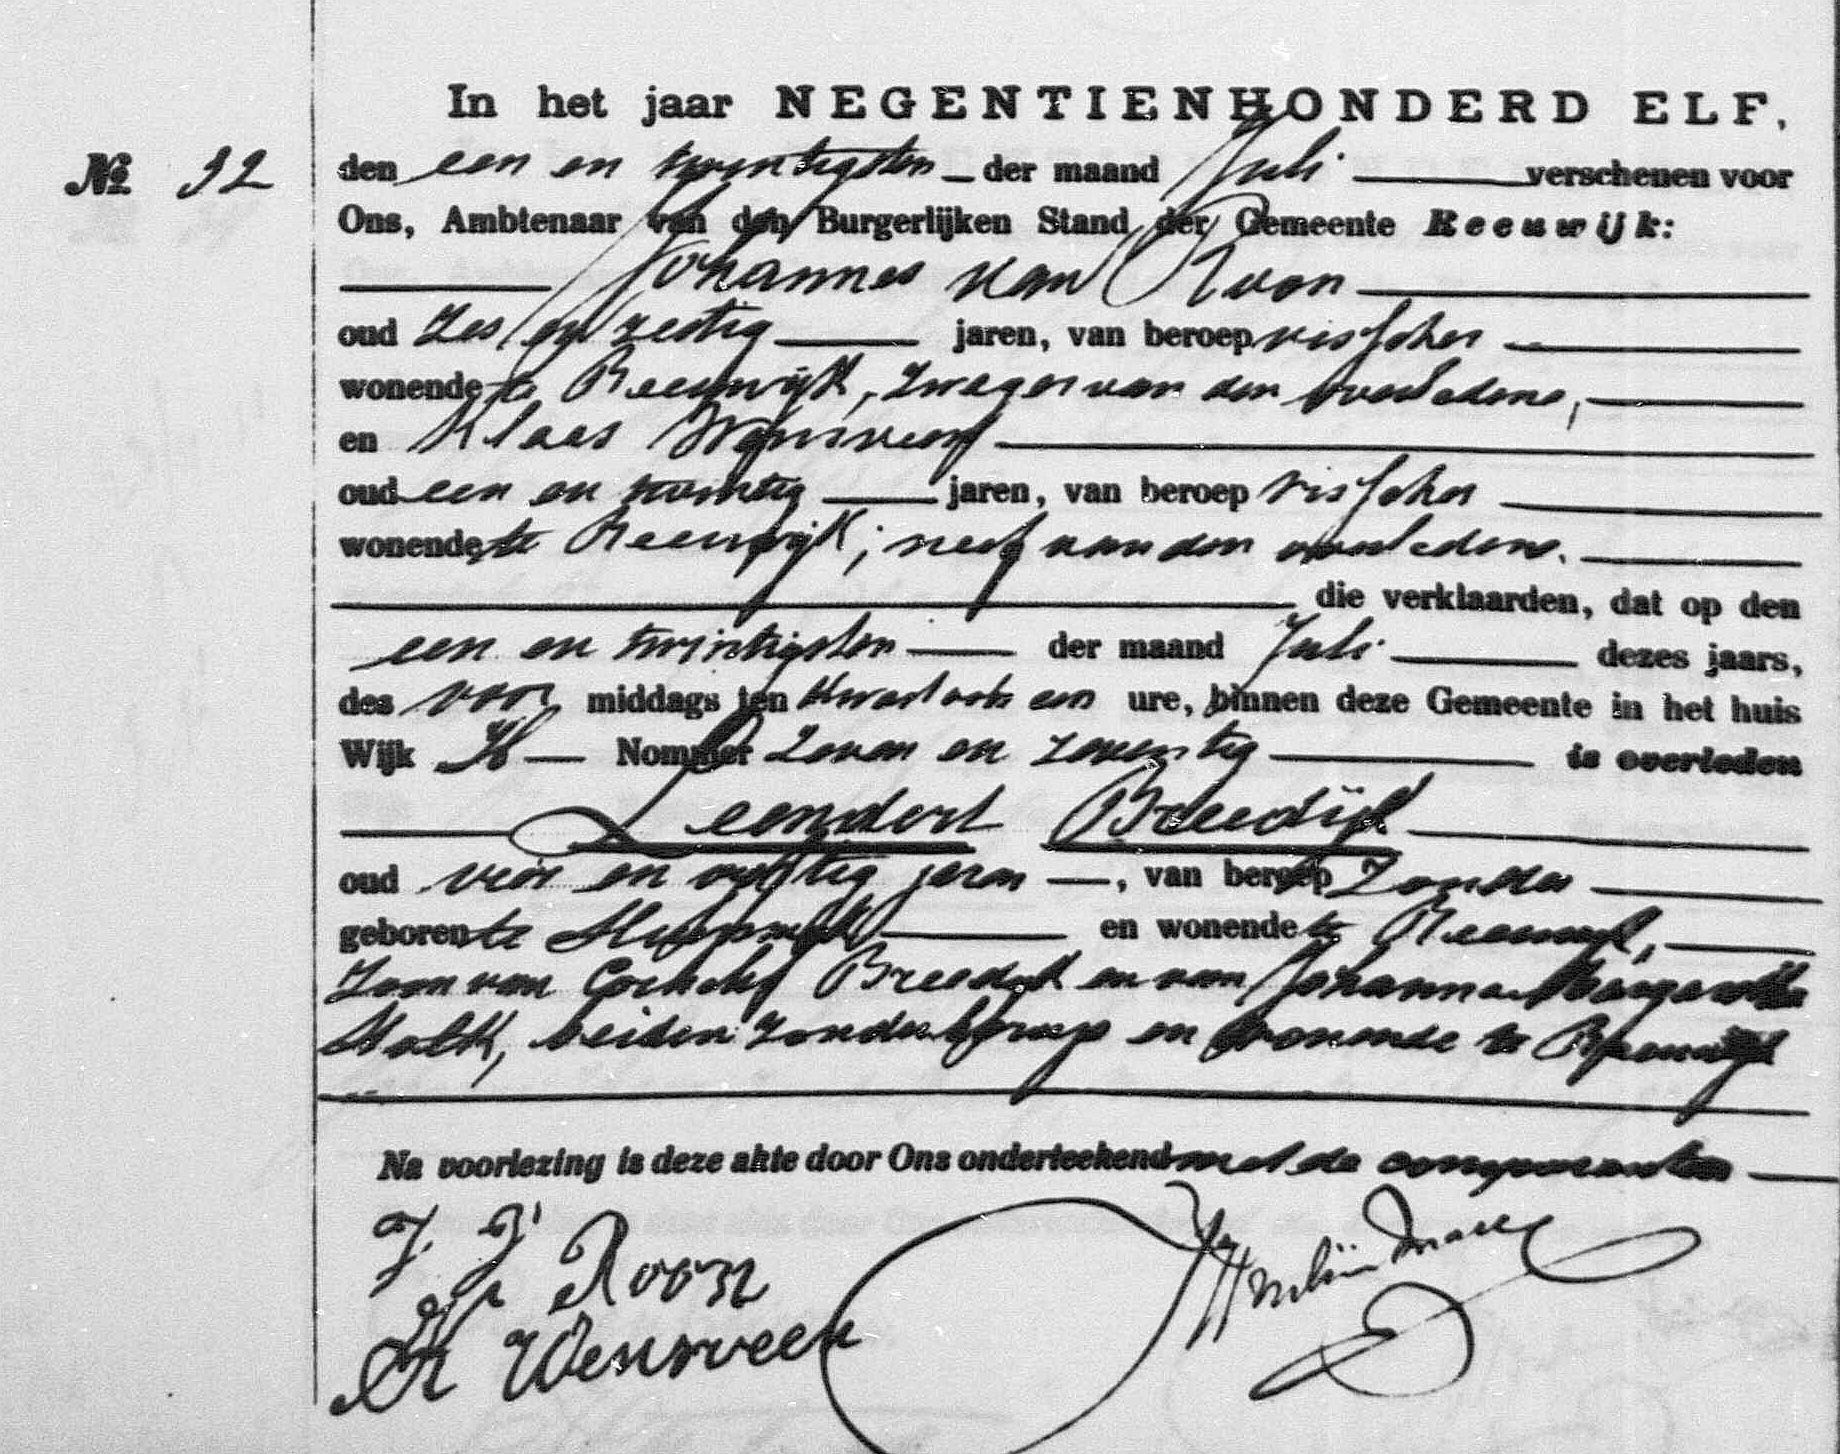 In het jaar NEGENTIENHONDERD ELF,
No 32 den een en twintigsten der maand Juli verschenen voor
Ons, Ambtenaar van den Burgerlijken Stand der Gemeente Reeuwijk:
Johannes van Roon
oud Zes en zestig jaren, van beroep visscher
wonende te Reeuwijk, Zwager van den overledene,
en Klaas Wensveen
oud een en jaren, van beroep visscher
wonende te Reeuwijk, neef van den overledene.
die verklaarden, dat op den
een en twintigsten der maand Juli dezes jaars,
des voor middags ten Kwart een ure, binnen deze Gemeente in het huis
Wijk Nommer Zeven en zeventig is overleden
Leendert Breedijk
oud vier en vijftig jaren, van beroep Zonder
geboren te en wonende te Reeuwijk,
Zoon van Breedijk en van Johanna Margaretha
beiden Zonder beroep en wonende te Reeuwijk
Na voorlezing is deze akte door Ons onderteekend met de comparanten
J. Roon
K Wensveen